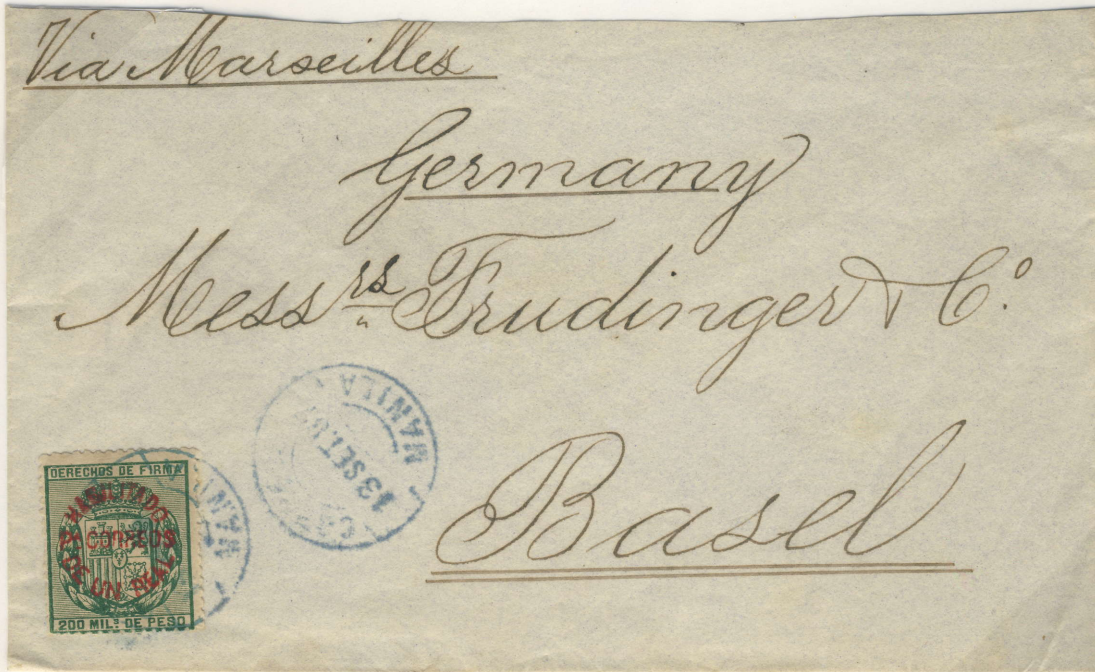 Via Marseilles
Germany
Mess rs Frudinger & Co.
Basel
MANILA
13 SET.
DERECHOS DE FIRMA
HABILITADO
CORREOS
DE UN REAL
200 MILS. DE PESO
MANI